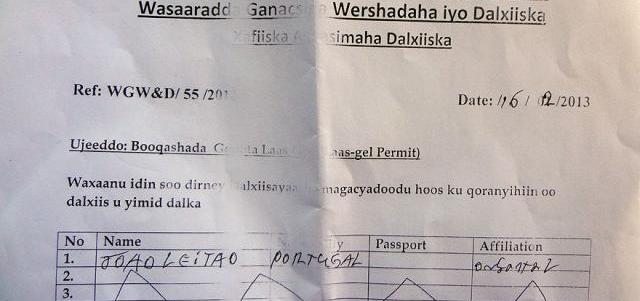 Wasaaradda Ganacsiga Wershadaha iyo Dalxiiska
Xafiiska Dalxiiska
Ref: WGW&D/ 55 /201
Date: /16 / 02 /2013
Ujeeddo: Booqashada Laas Laas-gel Permit)
Waxaanu idin soo dirney dalxiisayaa magacyadoodu hoos ku qoranyihiin oo
dalxiis u yimid dalka
No Name Passport Affiliation
1. JOAO LEITAO PORTUGAL
2.
3.